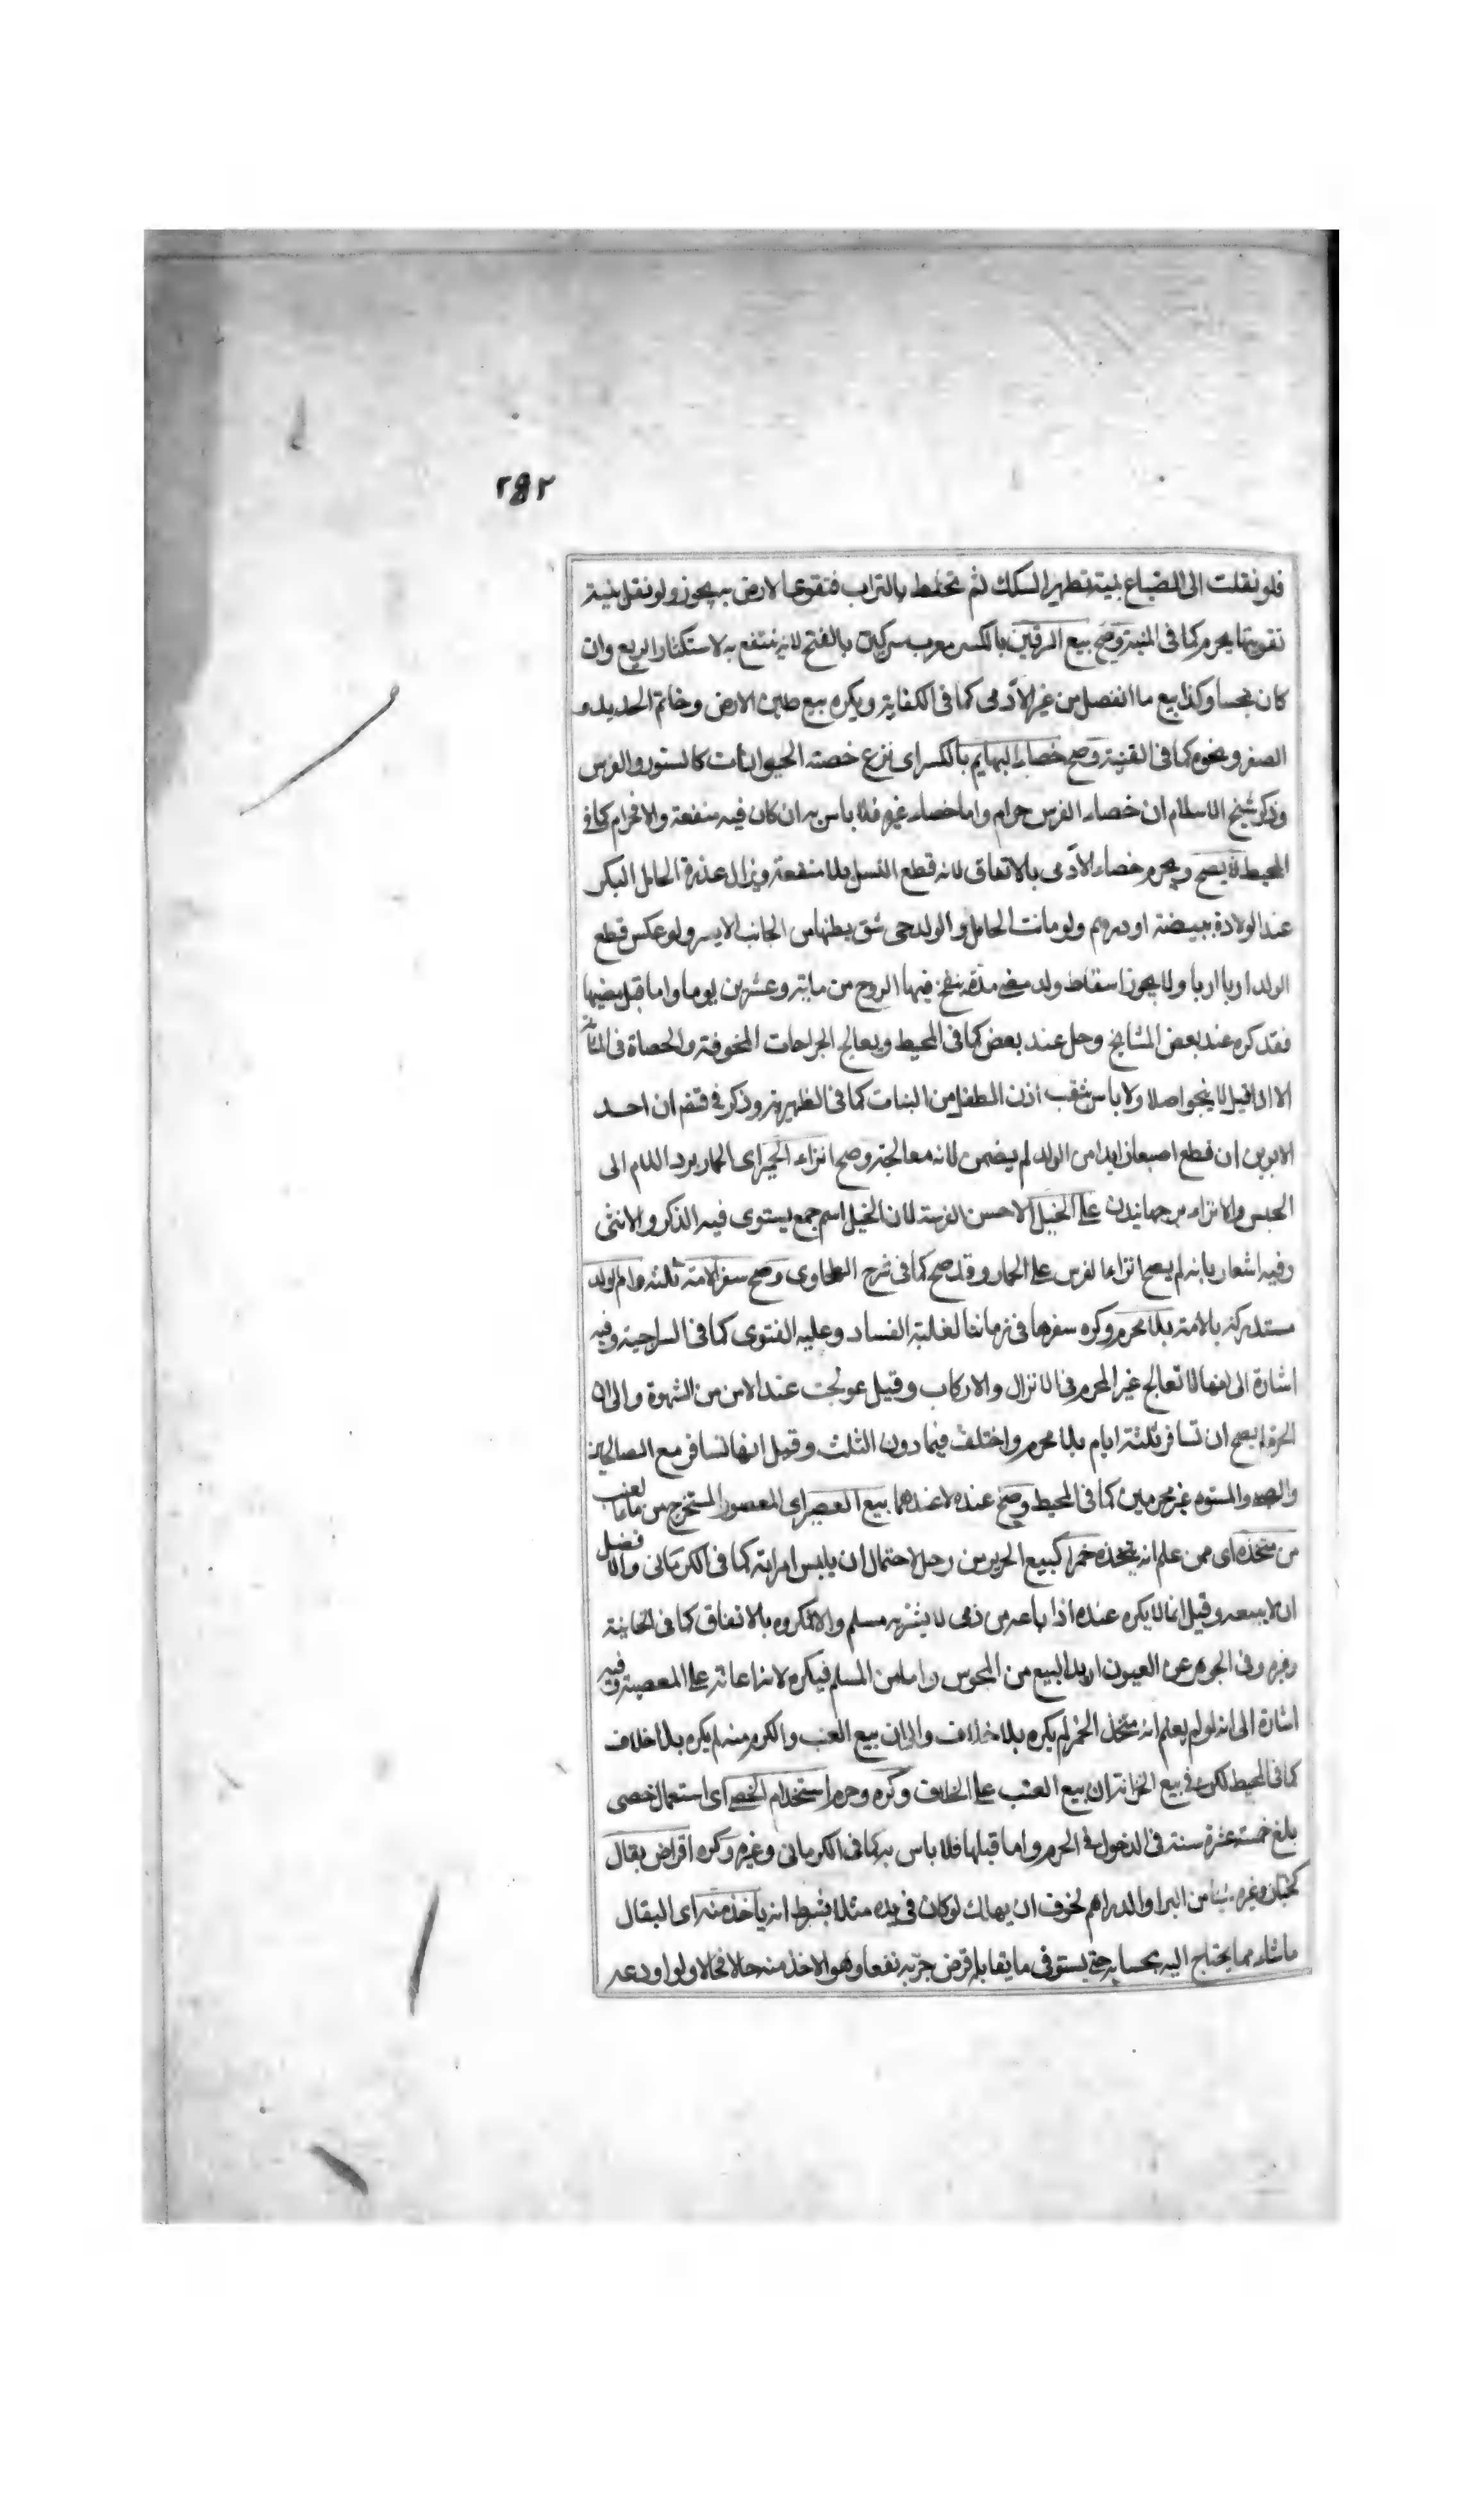 ٢٥٢
فلو نقلت الى الضياع بنية تطهير السكك ثم تخلط بالتراب فتقوى الارض به يجوز ولو نقل بنية
تقويتها يحرم كما فى المنية وصح بيع السرقين بالكسر معرب سركين بالفتح لانه منتفع به لاستكثار الريع وان
كان نجسا وكذا بيع ما انفصل من غير الآدمى كما فى الكفاية ويكره بيع طين الارض وخاتم الحديد و
الصفر ونحوه كما فى القنية وصح خصاء البهايم بالكسر اى نزع خصية الحيوانات كالسنور والفرس
وذكر شيخ الاسلام ان خصاء الفرس حرام واما خصاء غيره فلا باس به ان كان فيه منفعة والا فحرام كما فى
المحيط لا يصح ويحرم خصاء الآدمى بالاتفاق لانه قطع النسل بلا منفعة ويزال عذرة الحامل البكر
عند الولادة ببيضة او درهم ولو ماتت الحامل والولد حى شق بطنها من الجانب الايسر ولو عكس قطع
الولد اربا اربا ولا يجوز اسقاط ولد مضى مدة ينفخ فيها الروح من ماية وعشرين يوما واما قبل مضيها
فقد كره عند بعض المشايخ وحل عند بعض كما فى المحيط ويعالج الجراحات المخوفة والحصاة فى المثانة
الا اذا قيل لا ينجو اصلا ولا باس بثقب اذن الطفل من البنات كما فى الظهيرية وذكر فى ان احد
الابوين ان قطع اصبعا زايدا من الولد لم يضمن لانه معالجة وصح انزاء الحمير اى الحمار برد اللام الى
الجنس والانزاء برجهانيدن على الخيل الاحسن الفرسة لان الخيل اسم جمع يستوى فيه الذكر والانثى
وفيه اشعار بانه لم يصح انزاء الفرس على الحمار وقد صح كما فى شرح الطحاوى وصح سفر الامة ثلثة وام الولد
مستدركة بالامة بلا محرم وكره سفرها فى زماننا لغلبة الفساد وعليه الفتوى كما فى السراجية وفيه
اشارة الى انها لا تعالج غير المحرم فى الانزال والاركاب وقيل عولجت عند الامن من الشهوة والى ان
الحرة لم يصح ان تسافر ثلثة ايام بلا محرم واختلف فيما دون الثلث وقيل انها تسافر مع الصالحين
والصبى والمعتوه غير محرمين كما فى المحيط وصح عنده لا عندهما بيع العصير اى المعصور المستخرج من ماء العنب
من متخذه اى ممن علم انه يتخذه خمرا كبيع الحرير من رجل لاحتمال ان يلبس امراته كما فى الكرمانى والافضل
ان لا يبيعه وقيل انما لا يكره عنده اذا باعه من ذمى لا يشتريه مسلم والا فمكروه بالاتفاق كما فى الخانية
وغيره وفى الجوهر عن العيون اريد البيع من المجوس واما من المسلم فيكره لانه اعانة على المعصية وفيه
اشارة الى انه لو لم يعلم انه متخذ الخمر لم يكره بلا خلاف والى ان بيع العنب والكرم منه لم يكره بلا خلاف
كما فى المحيط لكن فى بيع الخزانة ان بيع العنب على الخلاف وكره وحرم استخدام الخصى اى استعمال خصى
بلغ خمسة عشرة سنة فى الدخول فى الحرم واما قبلها فلا باس به كما فى الكرمانى وغيره وكره اقراض بقال
كخباز وغيره شيئا من البر او الدراهم لخوف ان يهلك لو كان فى يده مثلا بشرط انه ياخذ منه اى البقال
ما شاء مما يحتاج اليه بحسابه حتى يستوفى ما يقابله قرض جر به نفعا وهو الاخذ منه حالا فحالا ولو اودعه